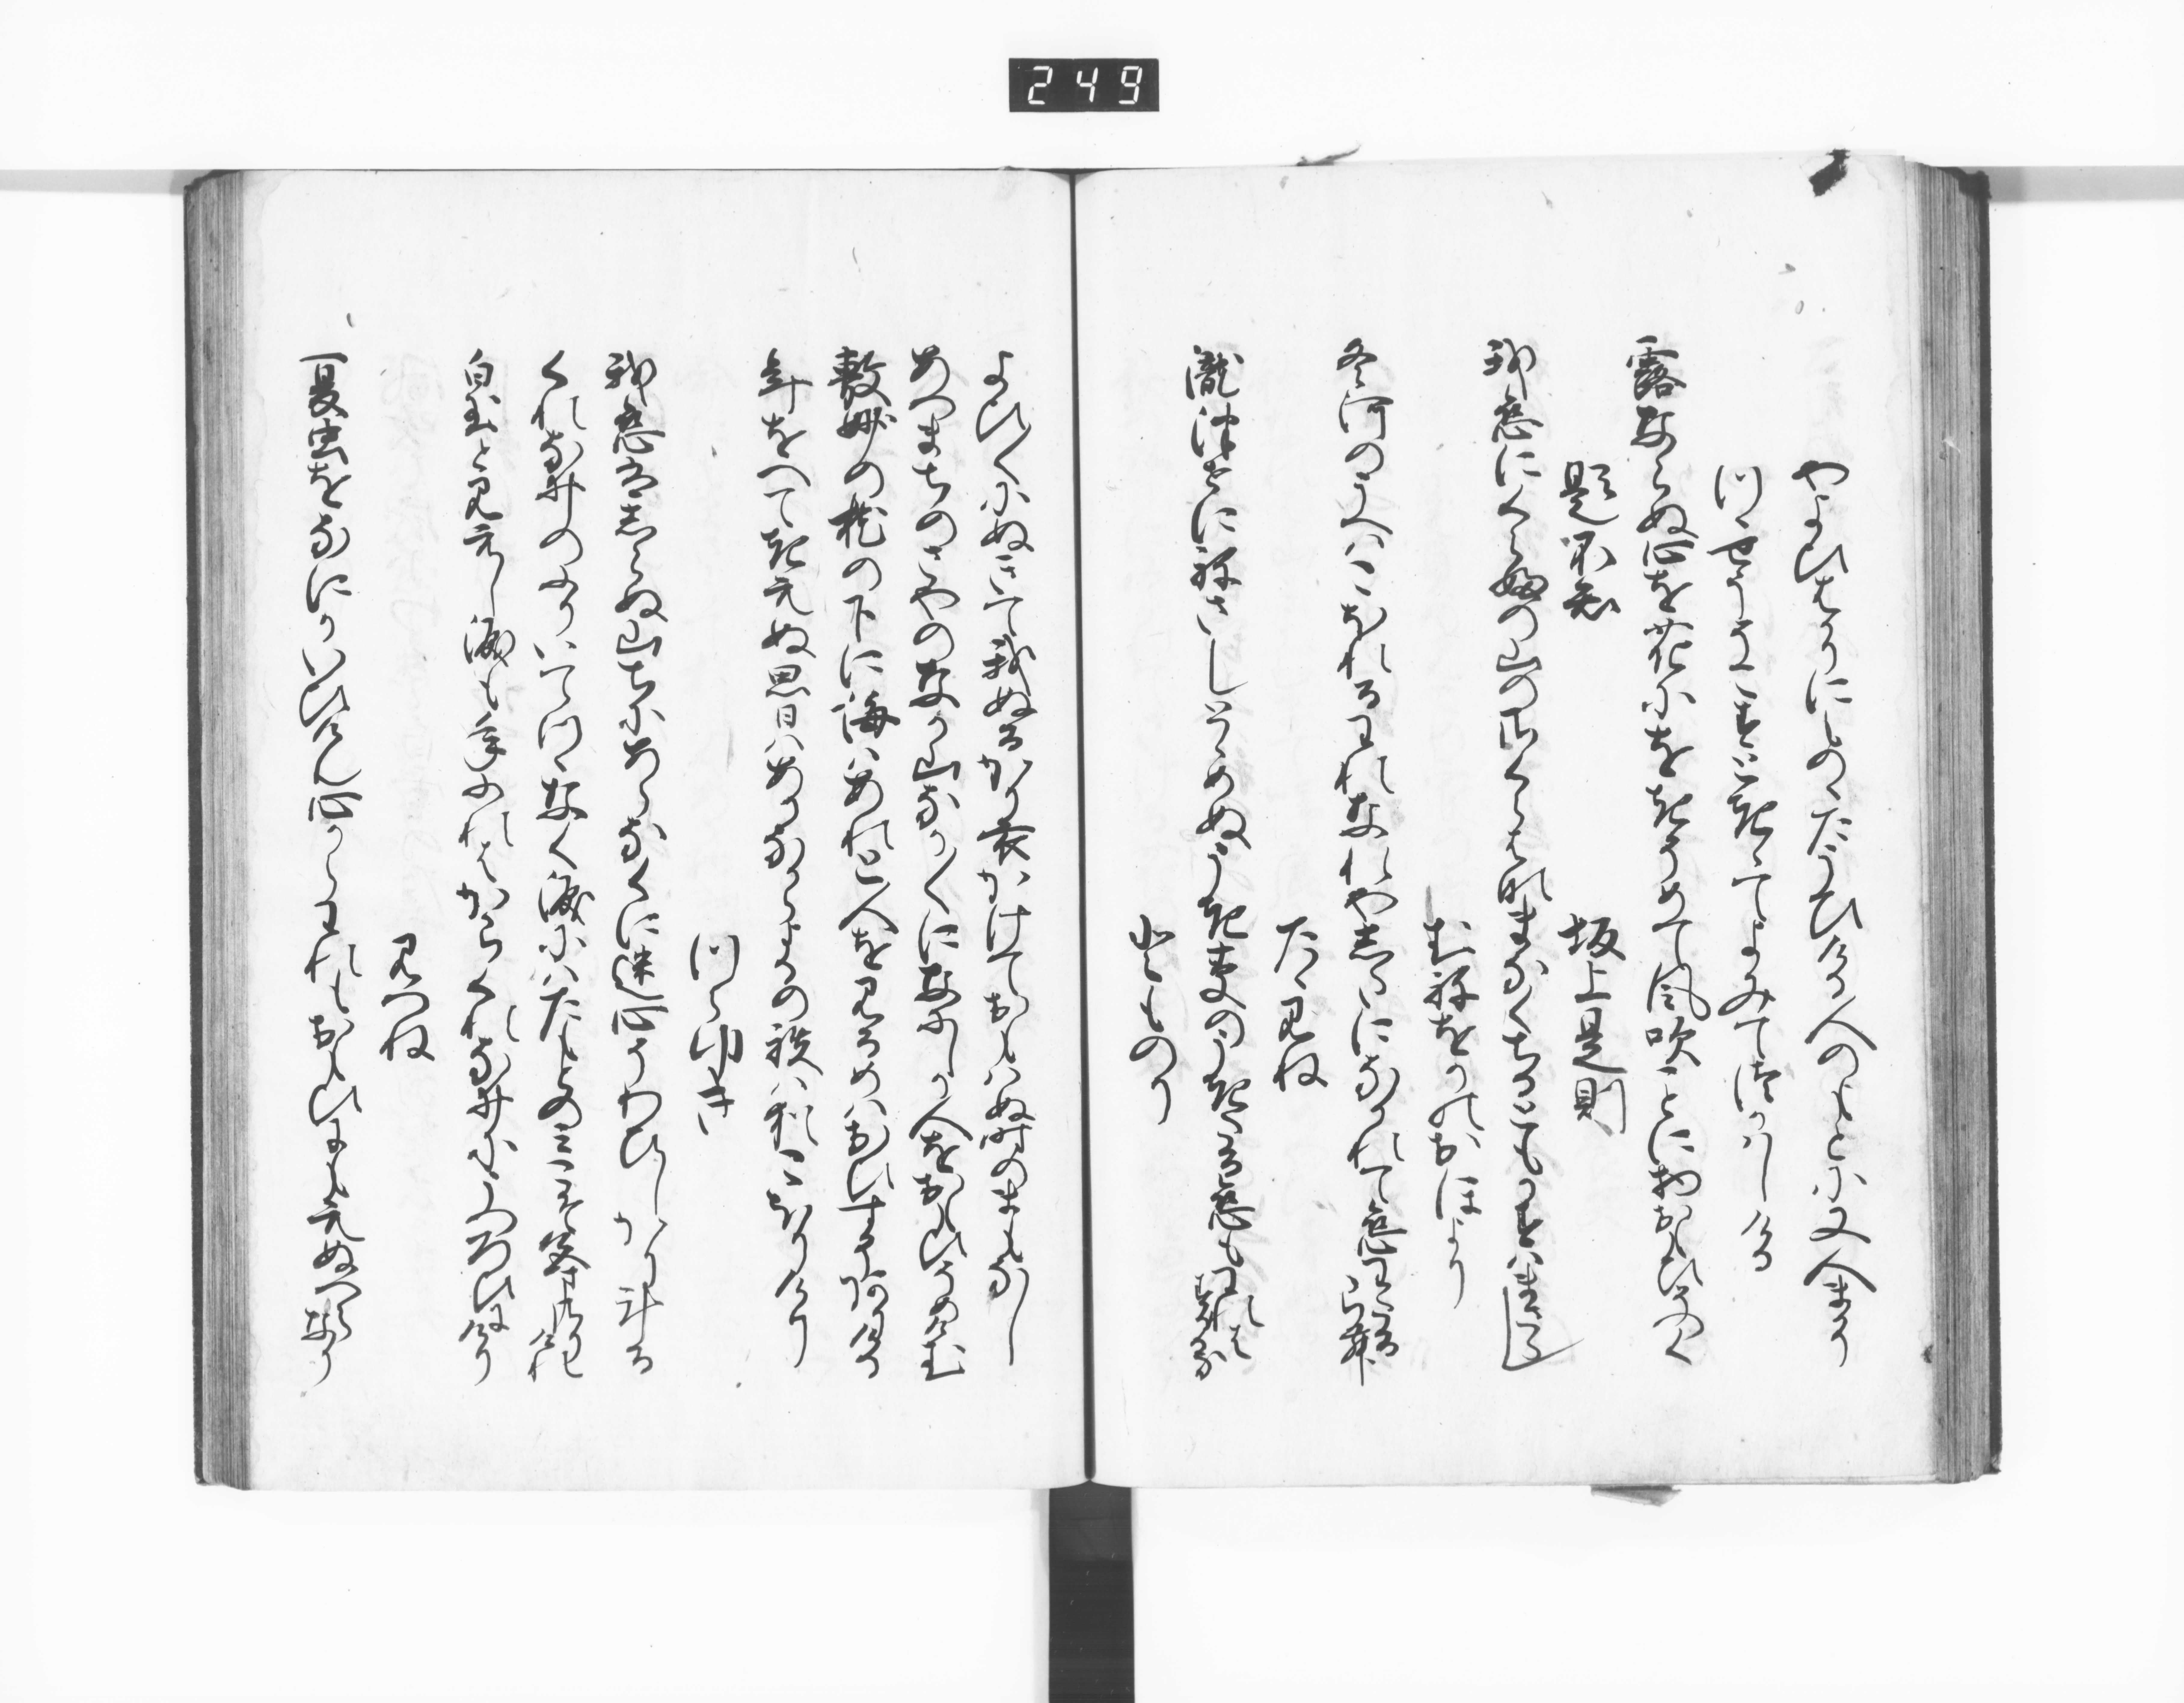 249
やよひはかりにものゝたうひける人のもとに又人まかり
つゝせうそこすと聞てよみて遣はしける
露ならぬ心を花にをきそめて風吹ことに物おもひそつく
題不知　坂上是則
我恋にくらふの山の桜花まなくちるともかすはまさらし
むねをかのおほより
冬河のうへはこほれるわれなれや志たになかれて恋わたるらむ
たゝみね
瀧津せに祢さしとゝめぬうき草のうきたる恋も我はするかな
とものり
よひ〱にぬきて我ぬるかり衣かけておもはぬ時のまもなし
あつまちのさやのなか山なか〱になにしか人をおもひそめけむ
敷妙の枕の下に海はあれと人を見るめはおひすそ有ける
年をへてきえぬ思日はありなからよるの袂は猶こほりけり
つらゆき
我恋は志らぬ山ちにあらなくに迷心そわひしかり計る
くれなゐのふりいてつゝなく涙にはたもとのみこそ色まさりけれ
白玉と見えし涙も年ふれはからくれなゐにうつろひにけり
見つね
夏虫をなにかいひけん心からわれもおもひにもえぬへら也